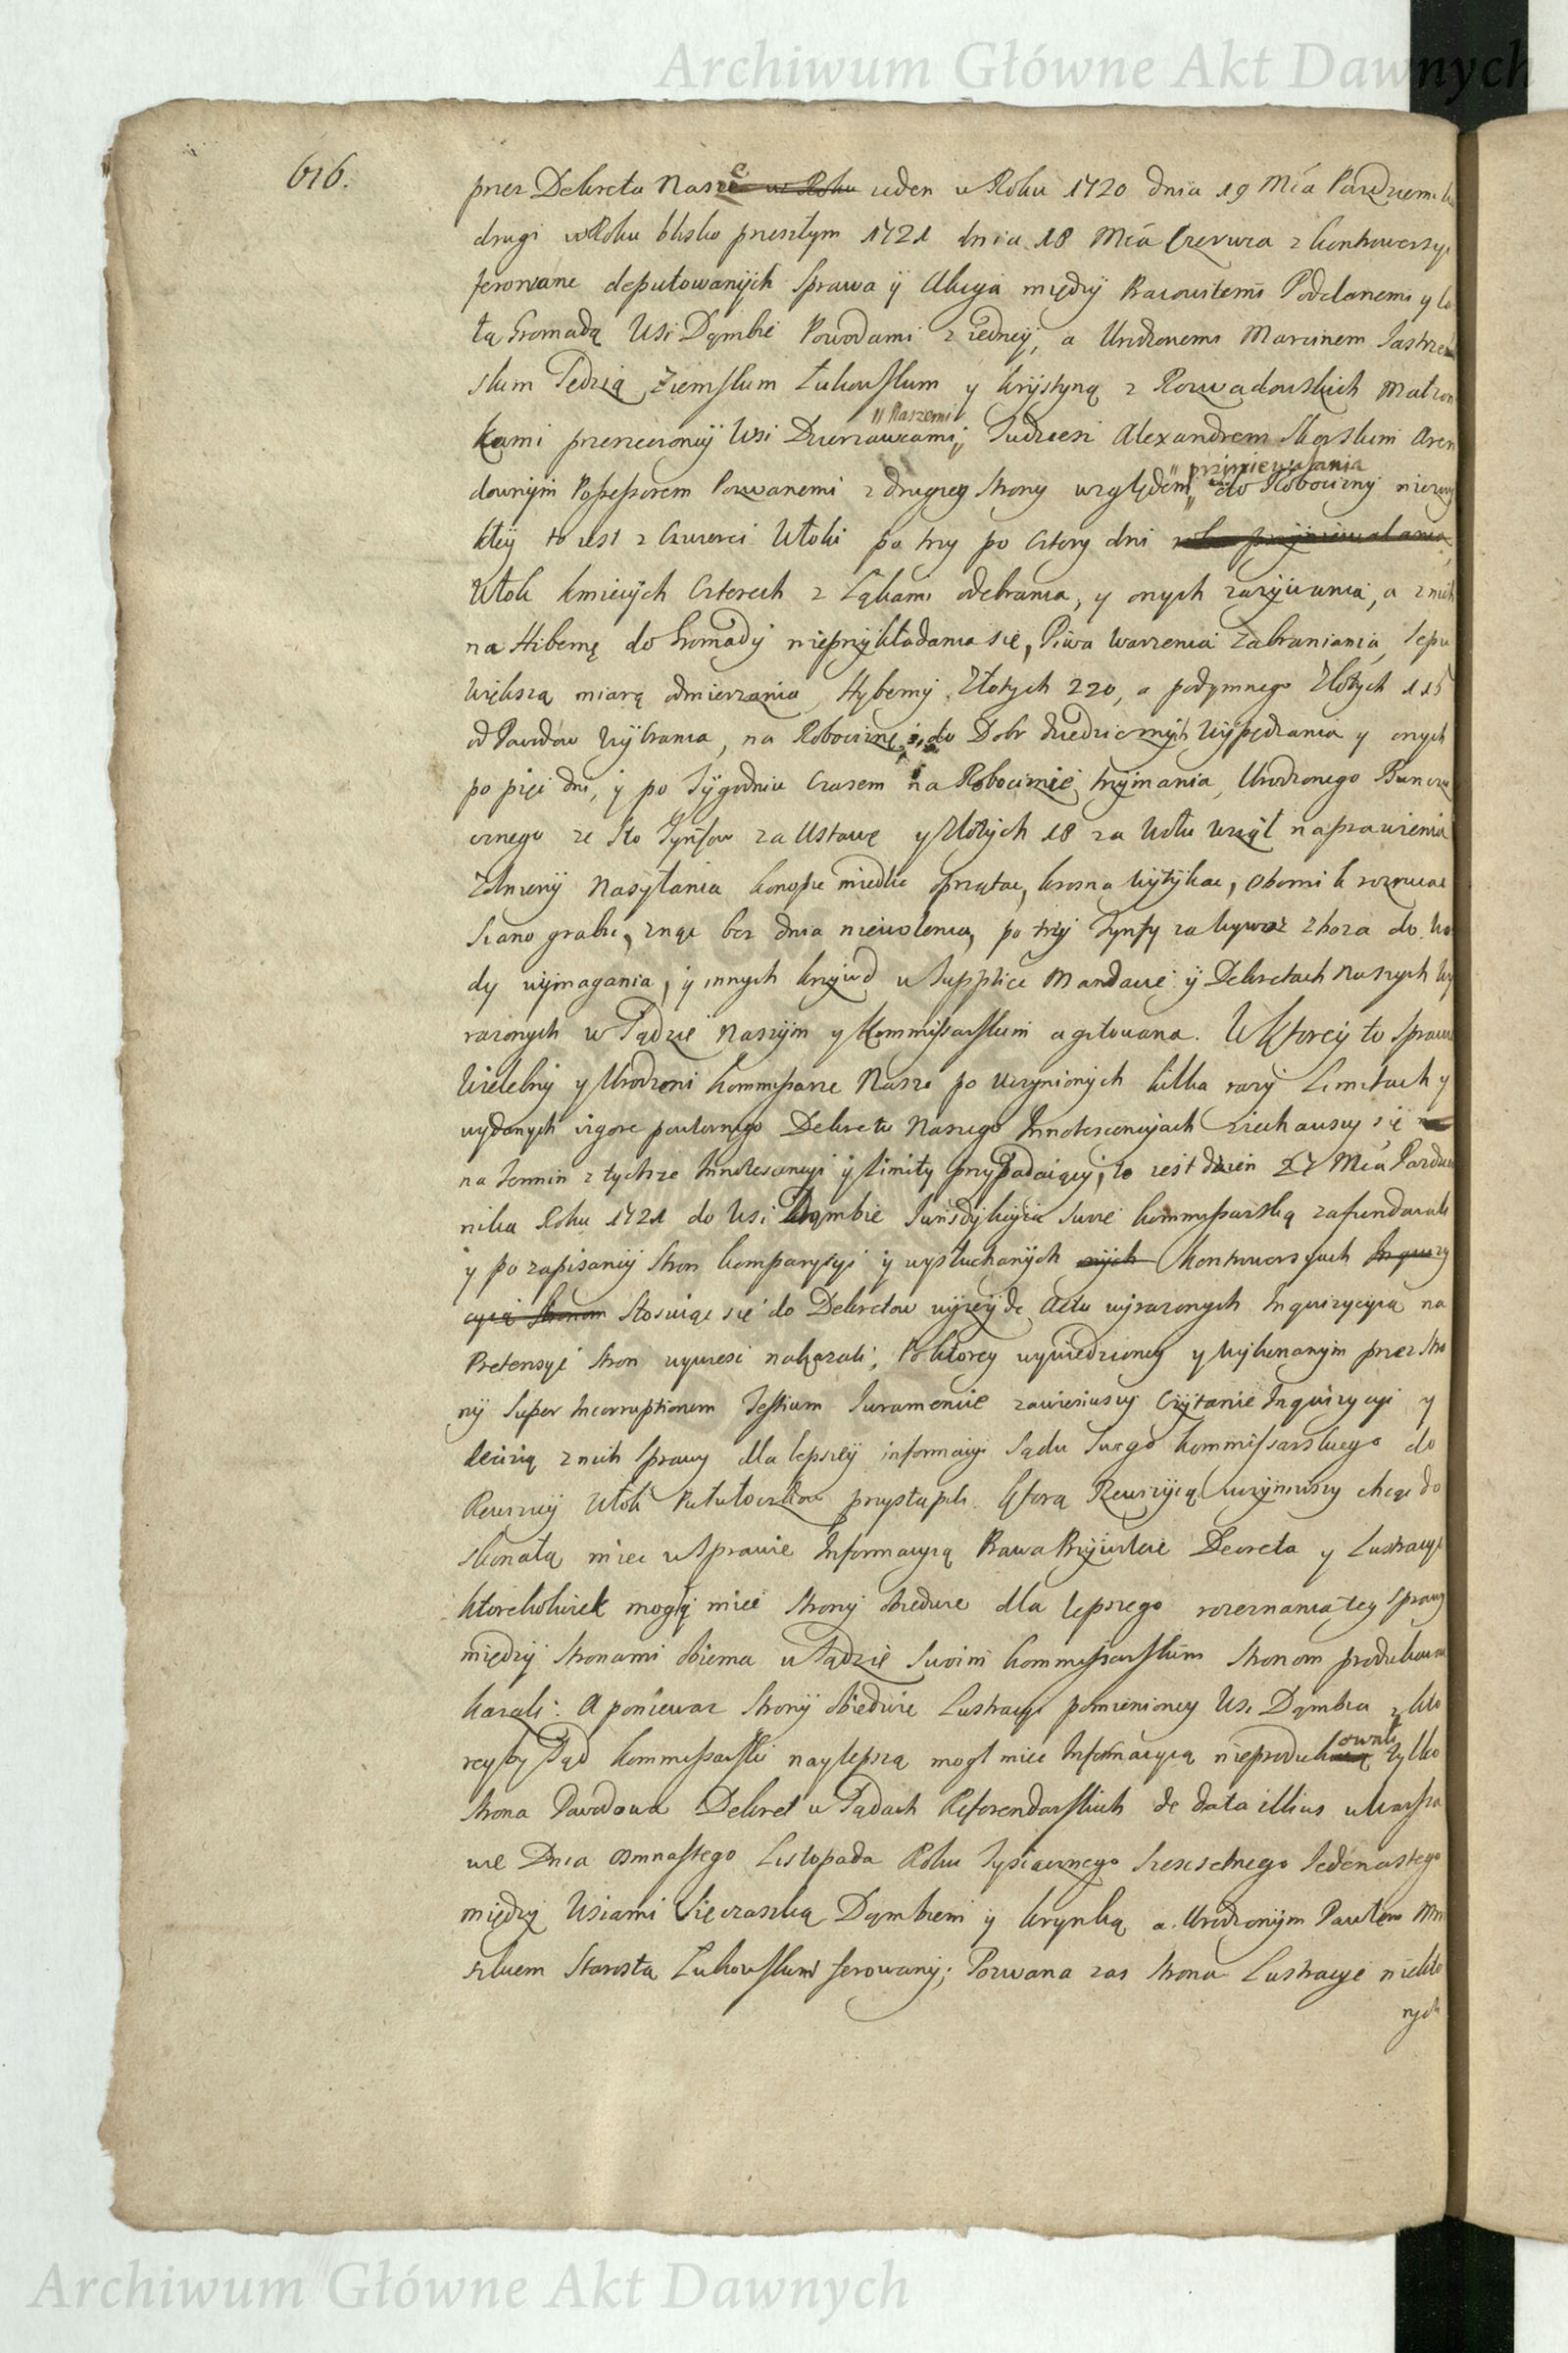 Archiwum Główne Akt Dawnych
616.
przez Dekreta Nasze w Roku ieden w Roku 1720 dnia 19 Mca Pazdziernika
drugi w Roku blisko przeszłym 1721 dnia 18 Mca Czerwca z kontrowersyi
ferowane deputowanych Sprawa y Akcya między Pracowitemi Poddanemi y ca
łą Gromadą Wsi Dąmbie Powodami z iedney, a Urodzonemi Marcinem Jastrzem
skim Sędzią Ziemskim Łukowskim y Krystyną z Rozwadowskich Małżon
" Naszemi
kami przerzeczoney Wsi Dzierzawcami, Tudziesz Alexandrem Aren
" przymiewalania
downym Possessorem Pozwanemi z drugiey Strony względem do Robocizny niezwy
kłey to iest z Czwierci Włoki po trzy po cztery dni
Włok kmiecych Czterech z Łąkami odebrania, y onych zazywania, a z nich
na Hibernę do Gromady nieprzykładania się, Piwa Warzenia Zabraniania, Sepu
większą miarą odmierzania, Hyberny Złotych 220, a podymnego Złotych 115
od Powodow Wybrania, na Robociznę do Dobr dziedzicznych Wypędzania y onych
po pięć dni, y po Tygodniu czasem na Robociznie trzymania, Urodzonego
ze Sto Tynfow za Ustawę y Złotych 18 za Wołu Wziął naprawienia
Zołnierzy Nasyłania konopie miedlic sprzątac, krosna wytykac, obornik rozrzucac
Siano grabic, ząc bez dnia niewolenia, po trzy Tynfy za wywoz zboza do Wo
dy wymagania, y innych krzywd w Supplice Mandacie y Dekretach Naszych wy
razonych w Sądzie Naszym y Kommissarskim agitowana. W ktorey to Sprawie
Wielebny y Urodzeni Kommissarze Nasze po Uczynionych kilka razy Limitach y
wydanych vigore powtornego Dekretu Naszego Innotescencyach ziechawszy się
na Termin z tychze Innotescencyi y Limity przypadaiący, to iest dzien 27 Mca Pazdzier
nika Roku 1721 do Wsi Dąmbie Jurisdykcyią Swoię Kommissarską zafundowali
y po zapisaniu Stron komparycyi y wysłuchanych onych Kontrowersyach Inquizy
cyią Stronom Stosuiąc się do Dekretow wyzey de Actu wyrazonych Inquizycyią na
Pretensyi Stron wywiesc nakazali, Po ktorey wywiedzioney y Wykonanym przez Stro
ny Super Incorruptionem Testium Juramencie zawiesiwszy Czytanie Inquizycyi y
decizią z nich Sprawy dla lepszey informacyi Sądu Swego Kommissarskiego do
Rewizyi Włok przystąpili. Ktorą Rewizyią uczyniwszy chcąc do
skonałą miec w Sprawie Informacyią Prawa Przywileie Decreta y Lustracyi
ktorekolwiek mogłę miec Strony obiedwie dla lepszego rozeznania tey Sprawy
między Stronami obiema w Sądzie Swoim Kommissarskim Stronom produkowac
kazali: A poniewaz Strony obiedwie Lustracyi pomienioney Wsi Dąmbia z kto
reyby Sąd Kommissarski naylepszą mogł miec Informacyią nieprodukowali tylko
Strona Powodowa Dekret w Sądach Referendarskich de data illius w Warsza
wie Dnia osmnastego Listopada Roku Tysiącznego Szescsetnego Jedenastego
między Wsiami Sięciaszką Dąmbiem y Krynką a Urodzonym Pawłem
Starostą Łukowskim ferowany; Pozwana zas Strona Lustracye niekto
rych
Archiwum Główne Akt Dawnych